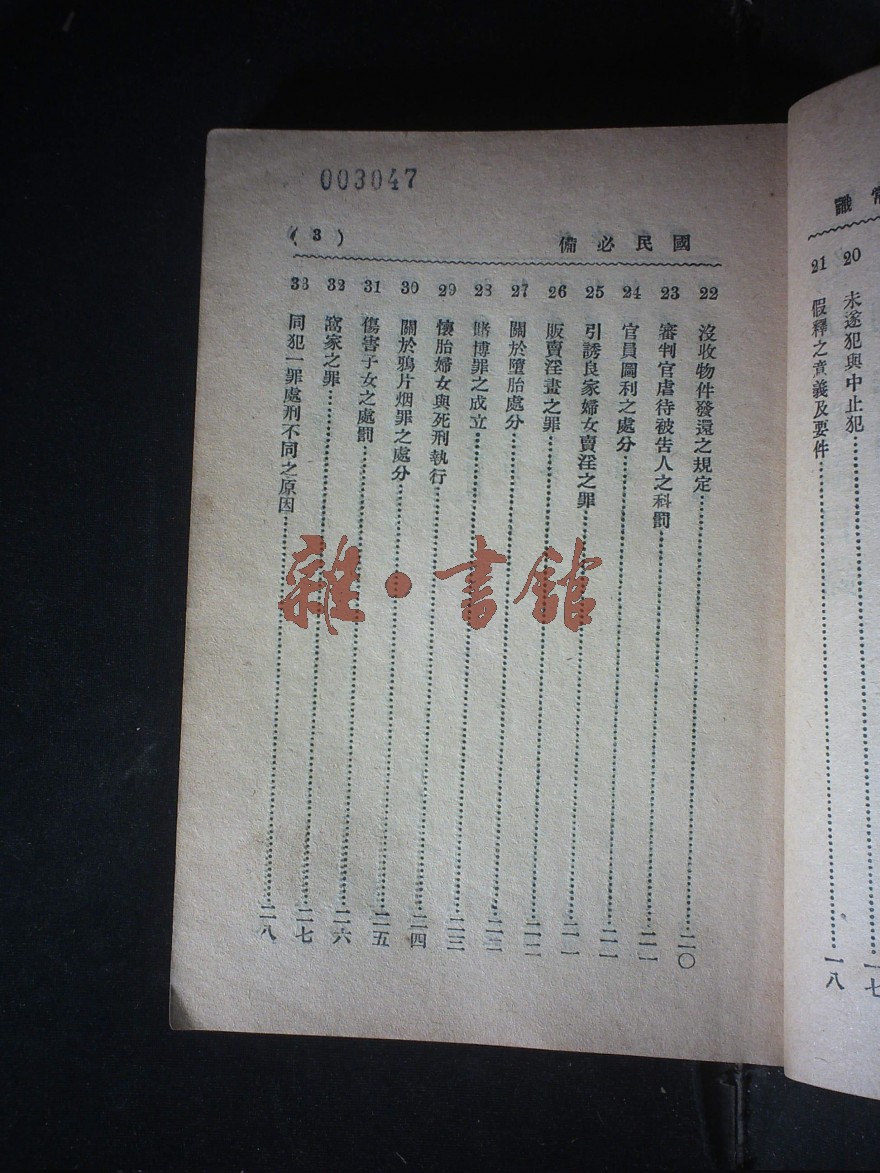 常識
20 未遂犯與中止犯……一七
21 假釋之意義及要件……一八
003047
國民必備
(3)
22 沒收物件發還之規定……二〇
23 審判官虐待被告人之科罰……二一
24 官員圖利之處分……二一
25 引誘良家婦女賣淫之罪……二一
26 販賣淫畫之罪……二二
27 關於墮胎處分……二三
28 賭博罪之成立……二三
29 懷胎婦女與死刑執行……二四
30 關於鴉片烟罪之處分……二五
31 傷害子女之處罰……二六
32 窩家之罪……二七
33 同犯一罪處刑不同之原因……二八
雜·書館